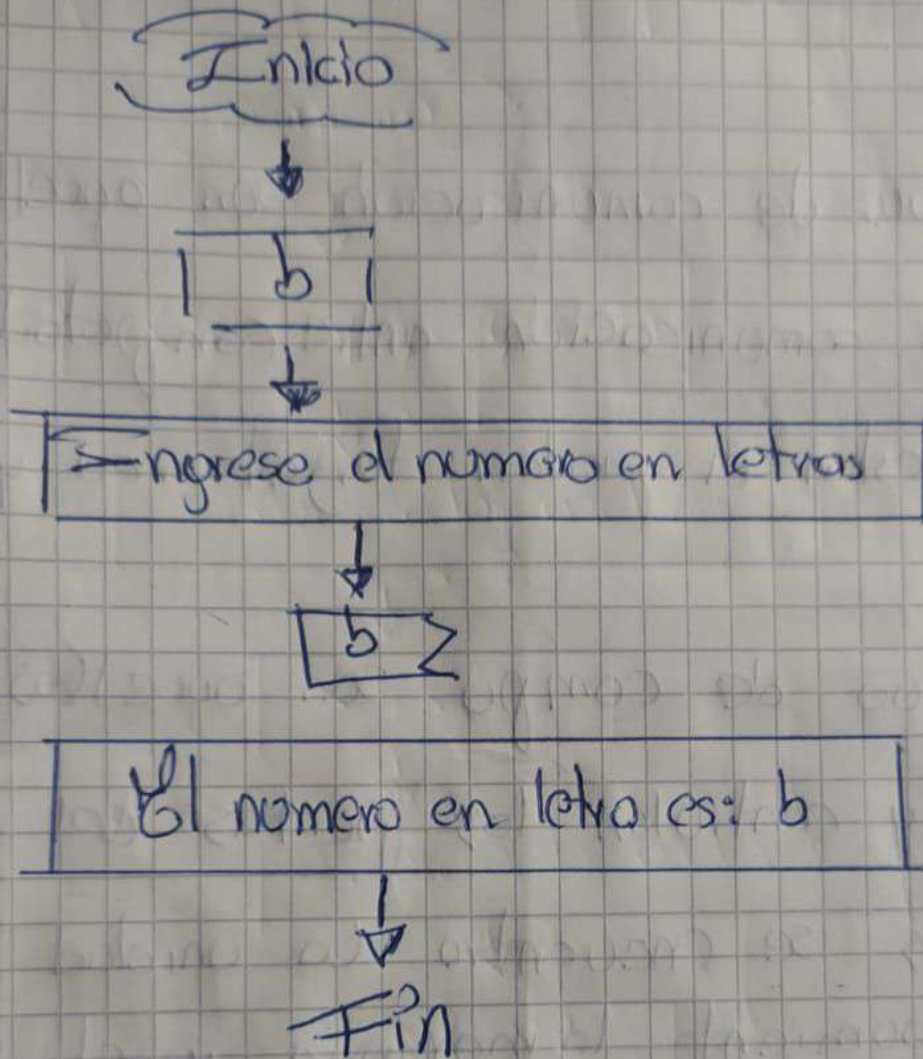 Inicio
b
Ingrese el numero en letras
b
El numero en letra es: b
Fin